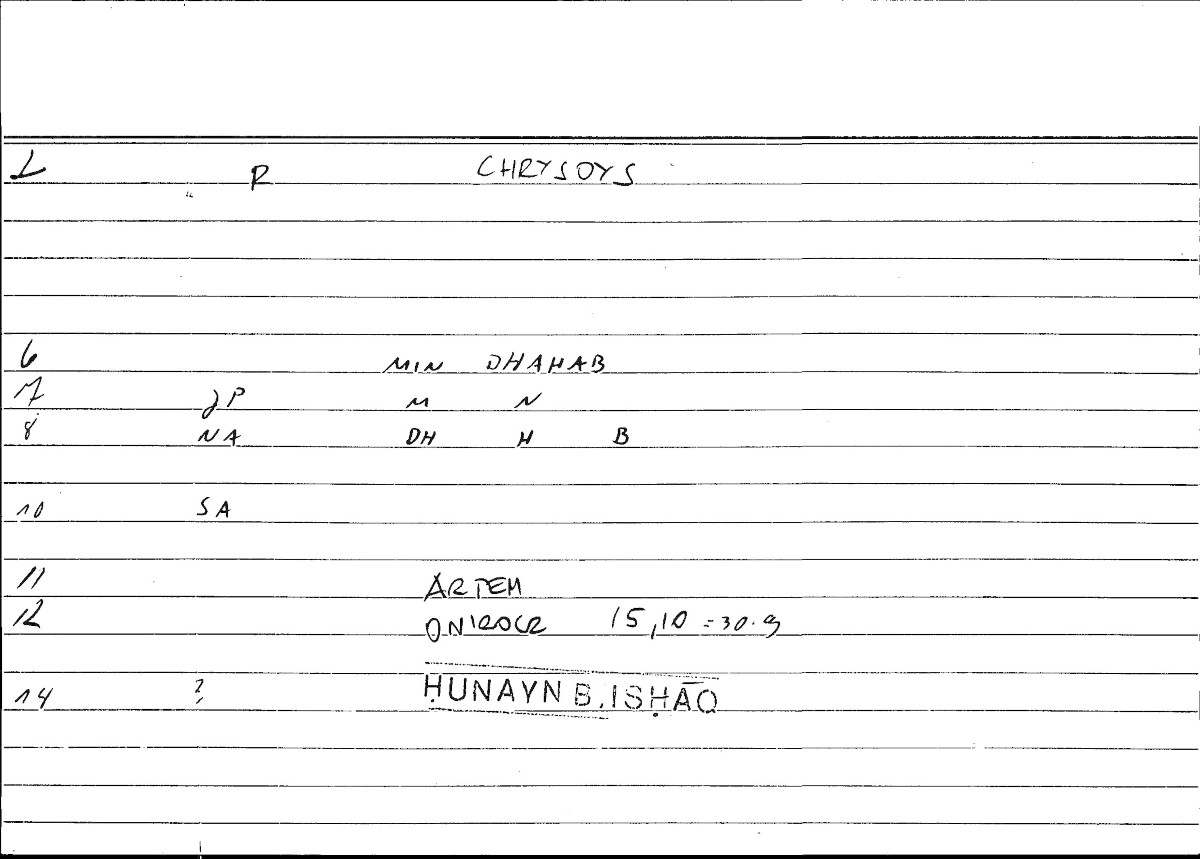 1 R CHRYSOYS
6 MIN DHAHAB
7 JP M N
8 NA DH H B
10 SA
11 ARTEM
12 ONIROCR 15,10 = 30.9
14 ? ḤUNAYN B. ISḤĀQ